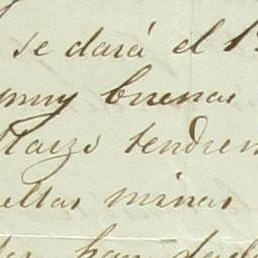 se dará el 1º
muy buenas
Maiz tendrem
ellas minas
han dad